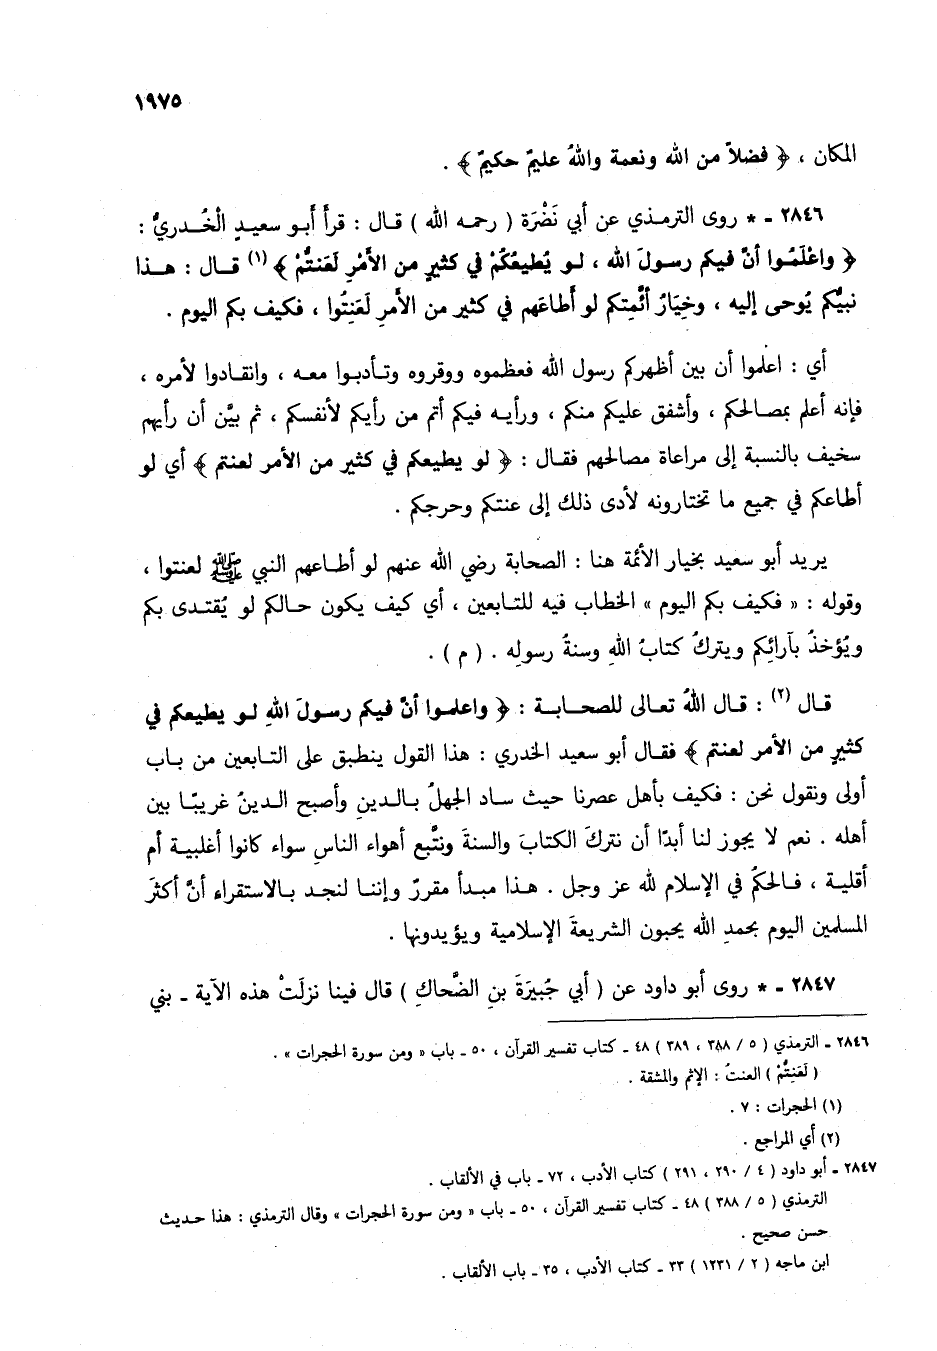 ١٩٧٥
المكان ، ﴿ فضلاً من الله ونعمة واللهُ عليمٌ حكيمٌ ﴾ .
٢٨٤٦ - * روى الترمذي عن أبي نَضْرَة ( رحمه الله ) قال : قرأَ أَبو سعيدٍ الْخُدريُّ :
﴿ واعْلَمُوا أنَّ فيكم رسولَ الله ، لو يُطيعُكُمْ في كثيرٍ من الأمْرِ لَعَنتُّمْ ﴾ (١) قال : هذا
نبيُّكم يُوحى إليه ، وخِيَارُ أئمتِكم لو أطاعَهم في كثير من الأَمرِ لَعَنِتُوا ، فكيف بكم اليوم .
أي : اعلموا أن بين أظهركم رسول الله فعظموه ووقروه وتأدبوا معه ، وانقادوا لأمره ،
فإنه أعلم بمصالحكم ، وأشفق عليكم منكم ، ورأيه فيكم أتم من رأيكم لأنفسكم ، ثم بيَّن أن رأيهم
سخيف بالنسبة إلى مراعاة مصالحهم فقال : ﴿ لو يطيعكم في كثير من الأمر لعنتم ﴾ أي لو
أطاعكم في جميع ما تختارونه لأدى ذلك إلى عنتكم وحرجكم .
يريد أبو سعيد بخيار الأئمة هنا : الصحابة رضي الله عنهم لو أطاعهم النبي ﷺ لعنتوا ،
وقوله : « فكيف بكم اليوم » الخطاب فيه للتابعين ، أي كيف يكون حالكم لو يُقتدى بكم
ويُؤخذُ بآرائِكم ويتركُ كتابُ اللهِ وسنةُ رسولِه . ( م ) .
قال (٢) : قال اللهُ تعالى للصحابة : ﴿ واعلموا أنَّ فيكم رسولَ اللهِ لو يطيعكم في
كثيرٍ من الأمر لعنتم ﴾ فقال أبو سعيد الخدري : هذا القول ينطبق على التابعين من باب
أولى ونقول نحن : فكيف بأهل عصرنا حيث ساد الجهلُ بالدينِ وأصبح الدينُ غريبًا بين
أهله . نعم لا يجوز لنا أبدًا أن نتركَ الكتابَ والسنةَ ونتَّبع أهواء الناسِ سواء كانوا أغلبية أم
أقلية ، فالحكمُ في الإسلام لله عز وجل . هذا مبدأ مقررٌ وإننا لنجد بالاستقراء أنَّ أكثرَ
المسلمين اليوم بحمدِ الله يحبون الشريعةَ الإسلامية ويؤيدونها .
٢٨٤٧ - * روى أبو داود عن ( أبي جُبيرَةَ بنِ الضَّحاكِ ) قال فينا نزلَتْ هذه الآية - بني
٢٨٤٦ - الترمذي ( ٥ / ٣٨٨ ، ٣٨٩ ) ٤٨ - كتاب تفسير القرآن ، ٥٠ - باب « ومن سورة الحجرات » .
( لَعَنِتُّمْ ) العنتُ : الإثم والمشقة .
(١) الحجرات : ٧ .
(٢) أي المراجع .
٢٨٤٧ - أبو داود ( ٤ / ٢٩٠ ، ٢٩١ ) كتاب الأدب ، ٧٢ - باب في الألقاب .
الترمذي ( ٥ / ٣٨٨ ) ٤٨ - كتاب تفسير القرآن ، ٥٠ - باب « ومن سورة الحجرات » وقال الترمذي : هذا حديث
حسن صحيح .
ابن ماجه ( ٢ / ١٢٣١ ) ٣٣ - كتاب الأدب ، ٣٥ - باب الألقاب .